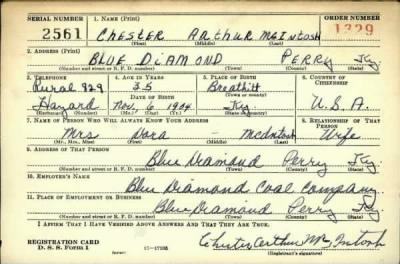 SERIAL NUMBER 1. NAME (Print) ORDER NUMBER
2561 CHESTER ARTHUR McINTOSH 1329
(First) (Middle) (Last)
2. ADDRESS (Print)
BLUE DIAMOND PERRY Ky.
(Number and street or R. F. D. number) (Town) (County) (State)
3. TELEPHONE 4. AGE IN YEARS 5. PLACE OF BIRTH 6. COUNTRY OF CITIZENSHIP
Rural 929 35 Breathitt
Hazard Nov. 6 1904 Ky. U.S.A.
(Exchange) (Number) (Mo.) (Day) (Yr.) (State or country)
7. NAME OF PERSON WHO WILL ALWAYS KNOW YOUR ADDRESS 8. RELATIONSHIP OF THAT PERSON
Mrs Dora McIntosh Wife
(Mr., Mrs., Miss) (First) (Middle) (Last)
9. ADDRESS OF THAT PERSON
Blue Diamond Perry Ky.
(Number and street or R. F. D. number) (Town) (County) (State)
10. EMPLOYER'S NAME
Blue Diamond Coal Company
11. PLACE OF EMPLOYMENT OR BUSINESS
Blue Diamond Perry Ky.
(Number and street or R. F. D. number) (Town) (County) (State)
I AFFIRM THAT I HAVE VERIFIED ABOVE ANSWERS AND THAT THEY ARE TRUE.
REGISTRATION CARD
D. S. S. Form 1 Chester Arthur McIntosh
(Registrant's signature)